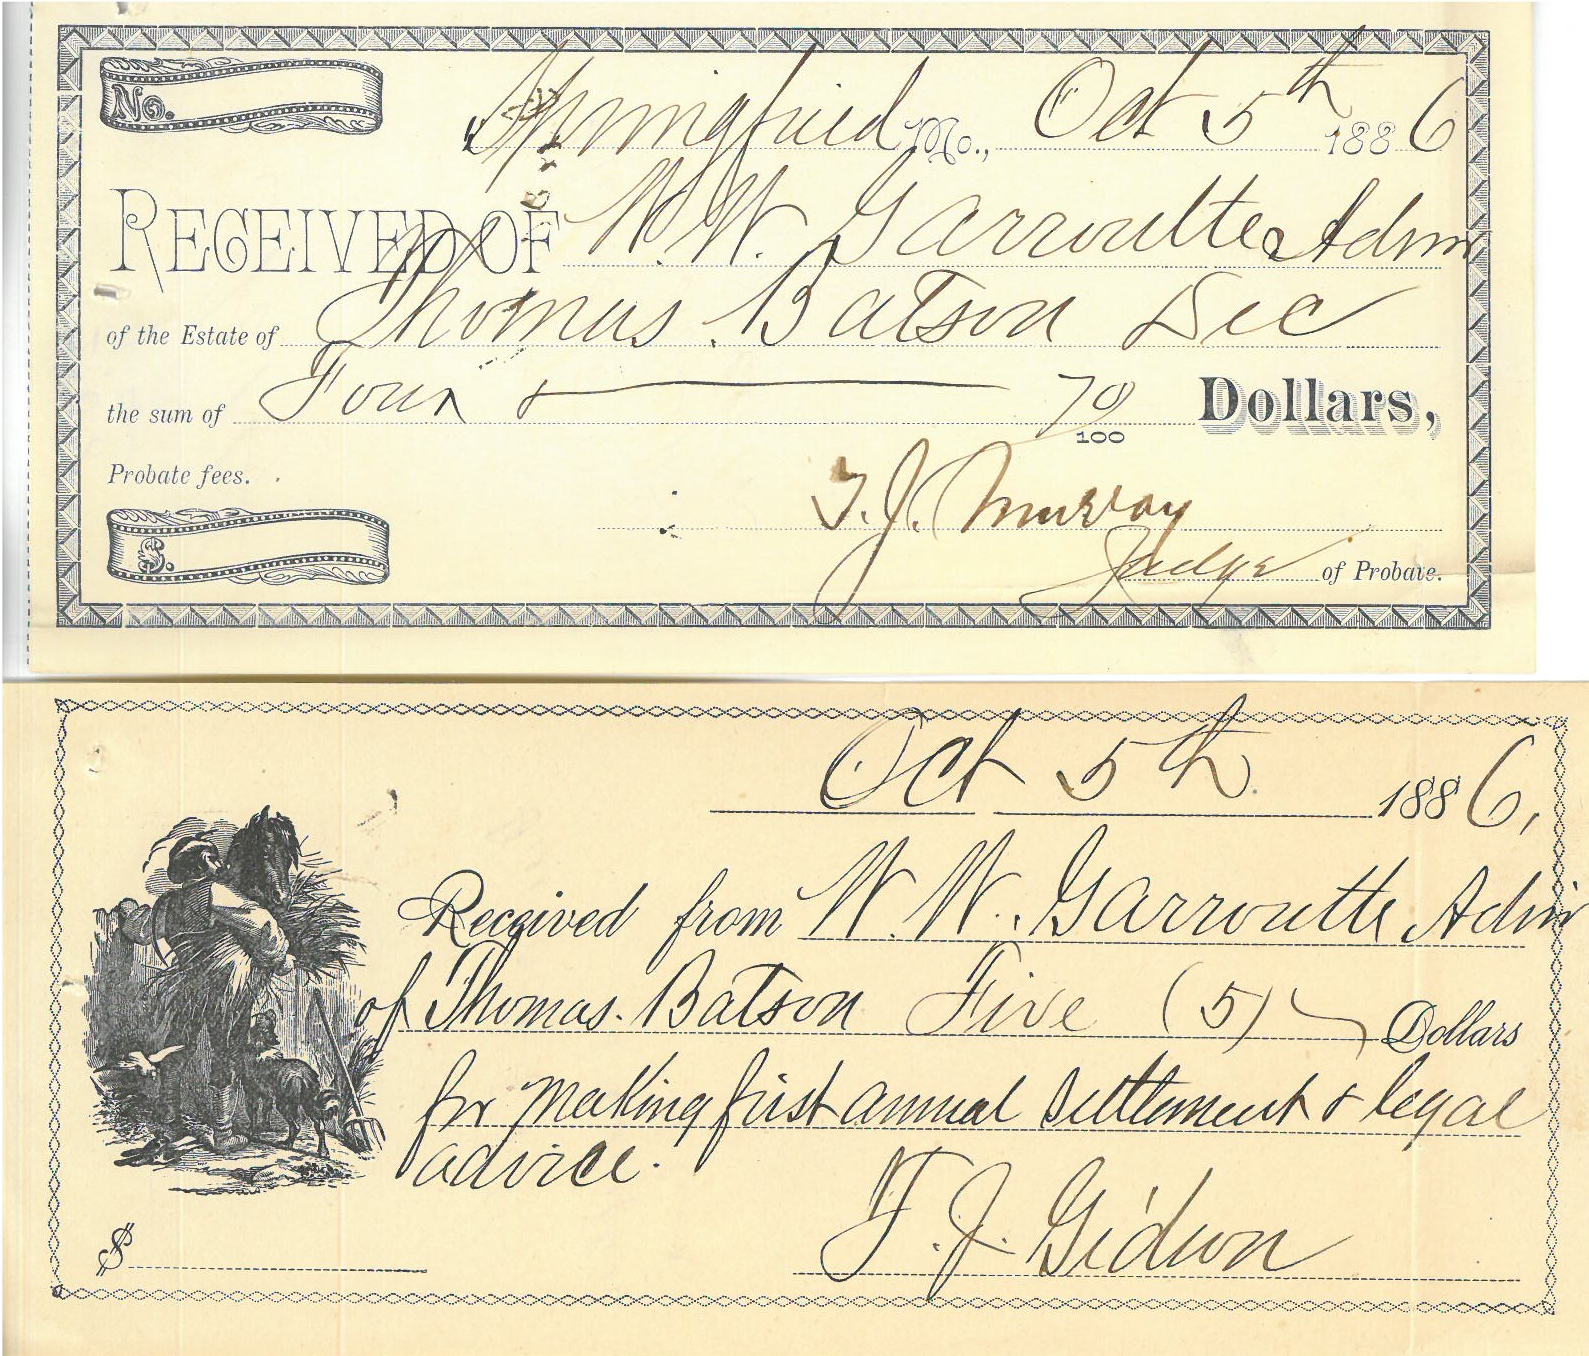 No.
Springfield Mo., Oct 5th 1886
RECEIVED OF W. W. Garroutte Admr
of the Estate of Thomas Batson Dec
the sum of Four & 70/100 Dollars,
Probate fees.
T. J. Murray
$. Judge of Probate.
Oct 5th 1886,
Received from W. W. Garroutte Admr
of Thomas Batson Five (5) Dollars
for making first annual settlement & legal
advice.
T. J. Gideon
$